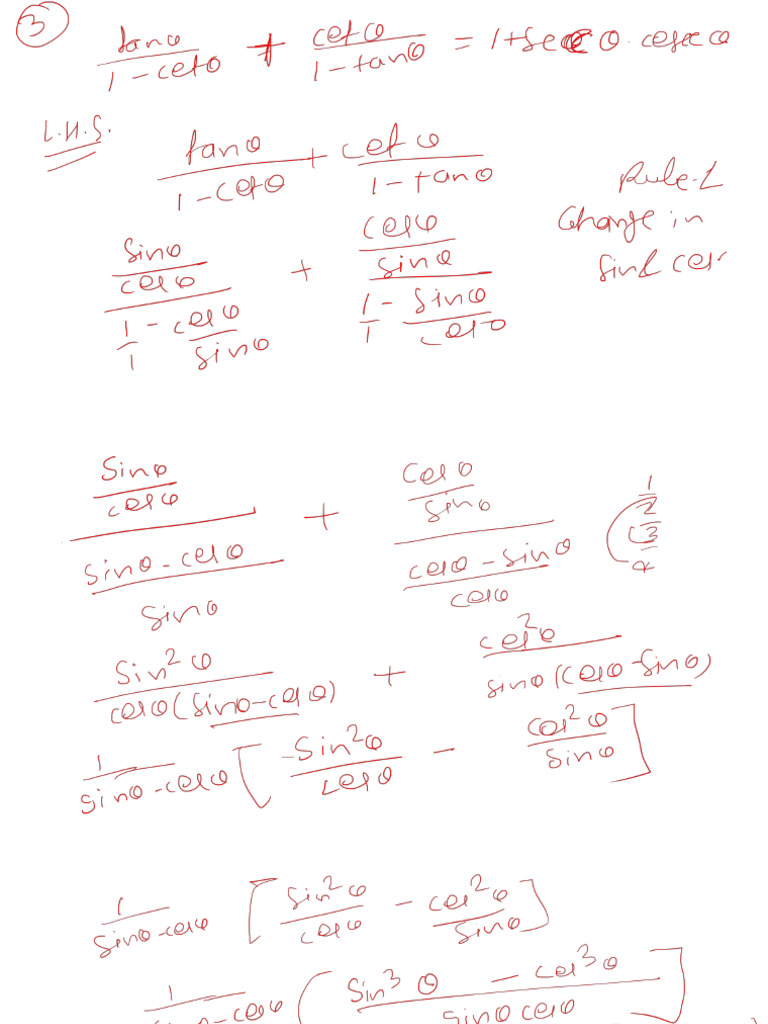 3
tanθ/(1-cotθ) + cotθ/(1-tanθ) = 1+secθ.cosecθ
L.H.S.
tanθ/(1-cotθ) + cotθ/(1-tanθ)
Rule-1
Change in
sin & cos
(sinθ/cosθ)/(1/1 - cosθ/sinθ) + (cosθ/sinθ)/(1/1 - sinθ/cosθ)
(sinθ/cosθ)/((sinθ-cosθ)/sinθ) + (cosθ/sinθ)/((cosθ-sinθ)/cosθ)
1/2/3/4
sin²θ/(cosθ(sinθ-cosθ)) + cos²θ/(sinθ(cosθ-sinθ))
1/(sinθ-cosθ) [sin²θ/cosθ - cos²θ/sinθ]
1/(sinθ-cosθ) [sin²θ/cosθ - cos²θ/sinθ]
1/(sinθ-cosθ) [(sin³θ - cos³θ)/(sinθ cosθ)]